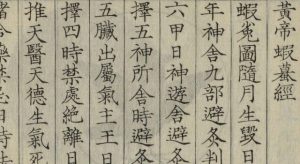 黃帝蝦蟇經
蝦兔圖隨月生毀日
年神舍九部避灸判
六甲日神遊舍避灸
擇五神所舍時避灸
五臟出屬氣主王日
擇四時禁處絕離日
推天醫天德生氣死